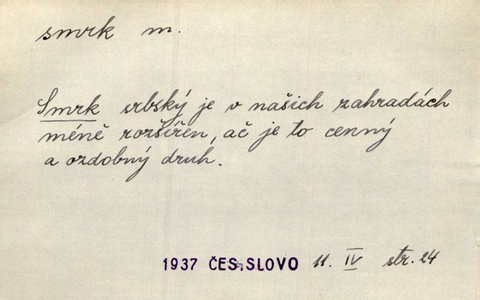 smrk m.
Smrk srbský je v našich zahradách
méně rozšířen, ač je to cenný
a ozdobný druh.
1937 ČES.SLOVO 11. IV str. 24